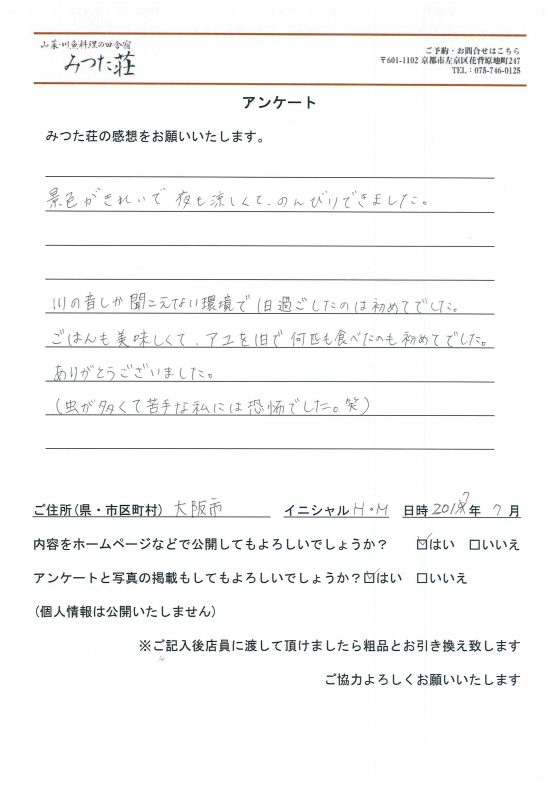 山菜・川魚料理の田舎宿
みつた荘
ご予約・お問合せはこちら
〒601-1102 京都市左京区花背原地町247
TEL：075-746-0125
アンケート
みつた荘の感想をお願いいたします。
景色がきれいで 夜も涼しくて、のんびりできました。
川の音しか聞こえない環境で1日過ごしたのは初めてでした。
ごはんも美味しくて、アユを1日で何匹も食べたのも初めてでした。
ありがとうございました。
(虫が多くて苦手な私には恐怖でした。笑)
ご住所(県・市区町村) 大阪市 イニシャル H・M 日時 2017年 7月
内容をホームページなどで公開してもよろしいでしょうか？ ☑はい □いいえ
アンケートと写真の掲載もしてもよろしいでしょうか？☑はい □いいえ
(個人情報は公開いたしません)
※ご記入後店員に渡して頂けましたら粗品とお引き換え致します
ご協力よろしくお願いいたします